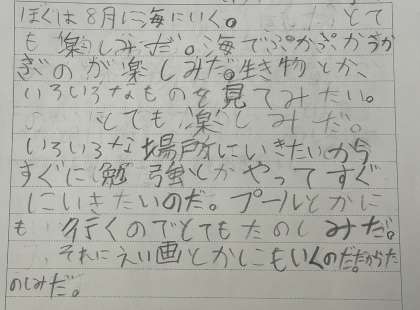 ぼくは8月に海にいく。とて
も楽しみだ。海でぷかぷかうか
ぶのが楽しみだ。生き物とか、
いろいろなものを見てみたい。
とても楽しみだ。
いろいろな場所にいきたいから
すぐに勉強とかやってすぐ
にいきたいのだ。プールとかに
も行くのでとてもたのしみだ。
それにえい画とかにもいくのだだからた
のしみだ。